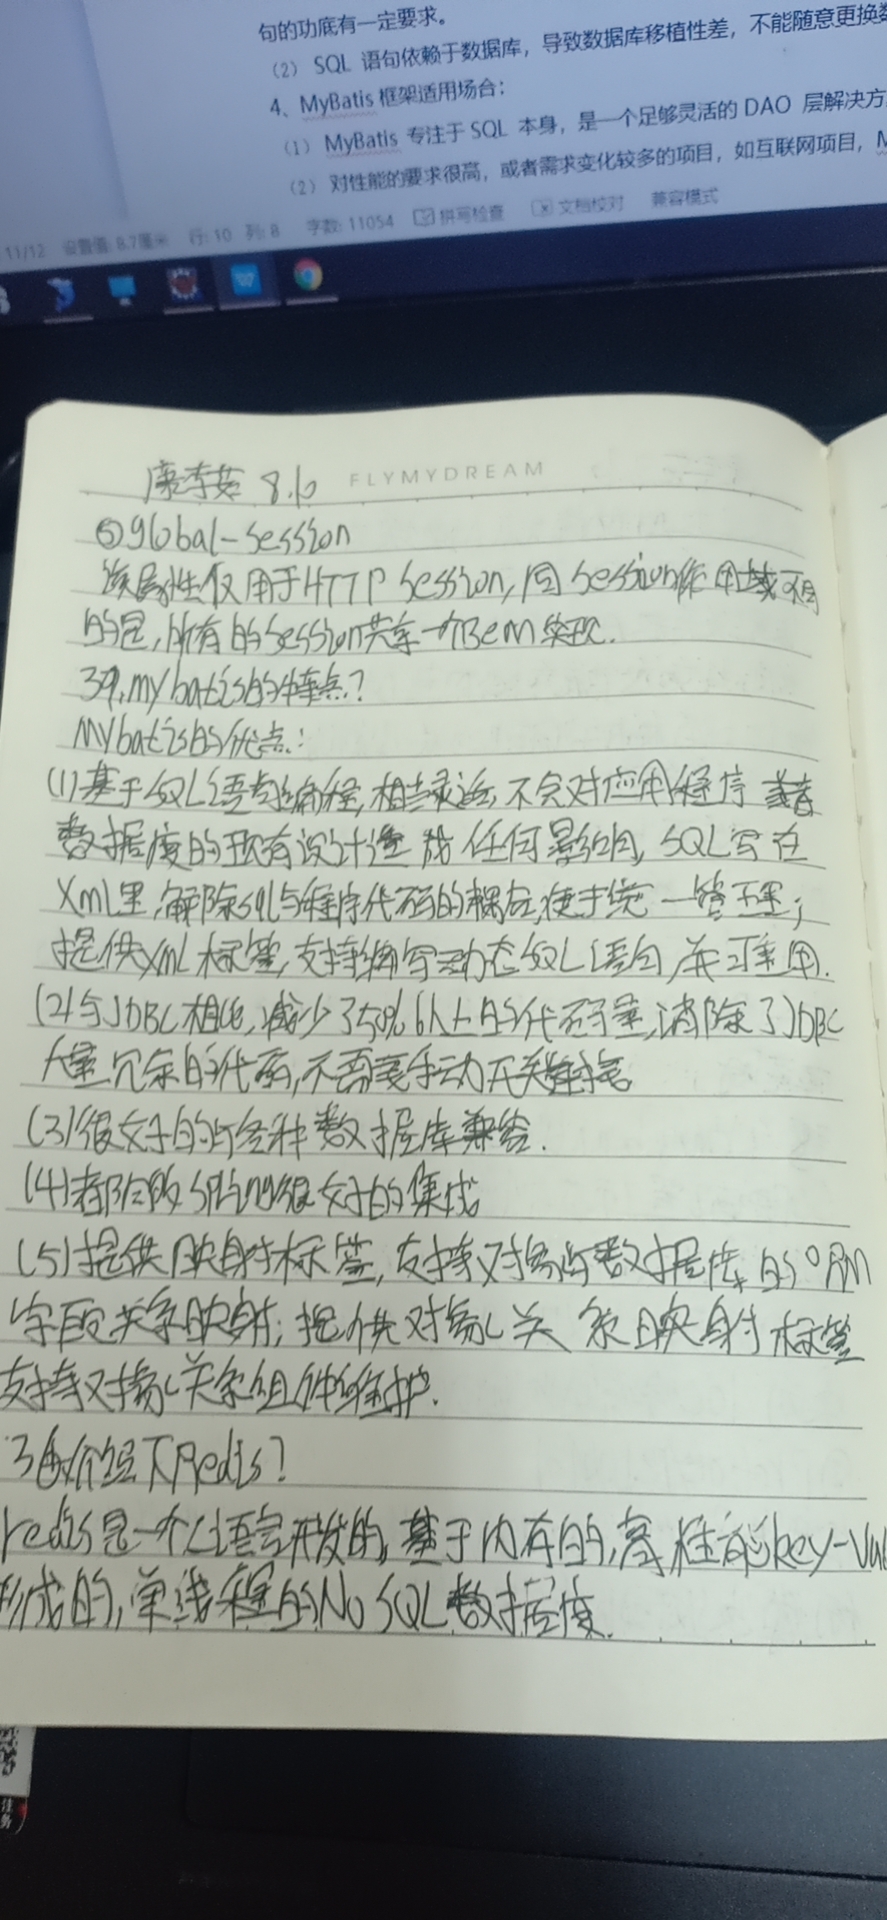 句的功底有一定要求。
（2） SQL 语句依赖于数据库，导致数据库移植性差，不能随意更换数
4、MyBatis 框架适用场合：
（1） MyBatis 专注于 SQL 本身，是一个足够灵活的 DAO 层解决方
（2） 对性能的要求很高，或者需求变化较多的项目，如互联网项目，M
11/12 设置值: 8.7厘米 行: 10 列: 8 字数: 11054 拼写检查 文档校对 兼容模式
8.6 FLYMYDREAM
⑤global-session
该属性仅用于HTTP Session,同Session作用域不同
的是,所有的Session共享一个Bean实现.
39.mybatis的特点?
Mybatis的优点:
(1)基于SQL语句编程,相当灵活,不会对应用程序或者
数据库的现有设计造成任何影响,SQL写在
Xml里,解除sql与程序代码的耦合,便于统一管理;
提供Xml标签,支持编写动态SQL语句,并可重用.
(2)与JDBC相比,减少了50%以上的代码量,消除了JDBC
大量冗余的代码,不需要手动开关连接
(3)很好的与各种数据库兼容.
(4)能够与Spring很好的集成
(5)提供映射标签,支持对象与数据库的ORM
字段关系映射;提供对象关系映射标签
支持对象关系组件维护.
介绍下Redis?
redis是一个C语言开发的,基于内存的,高性能key-
形成的,单线程的NoSQL数据库.